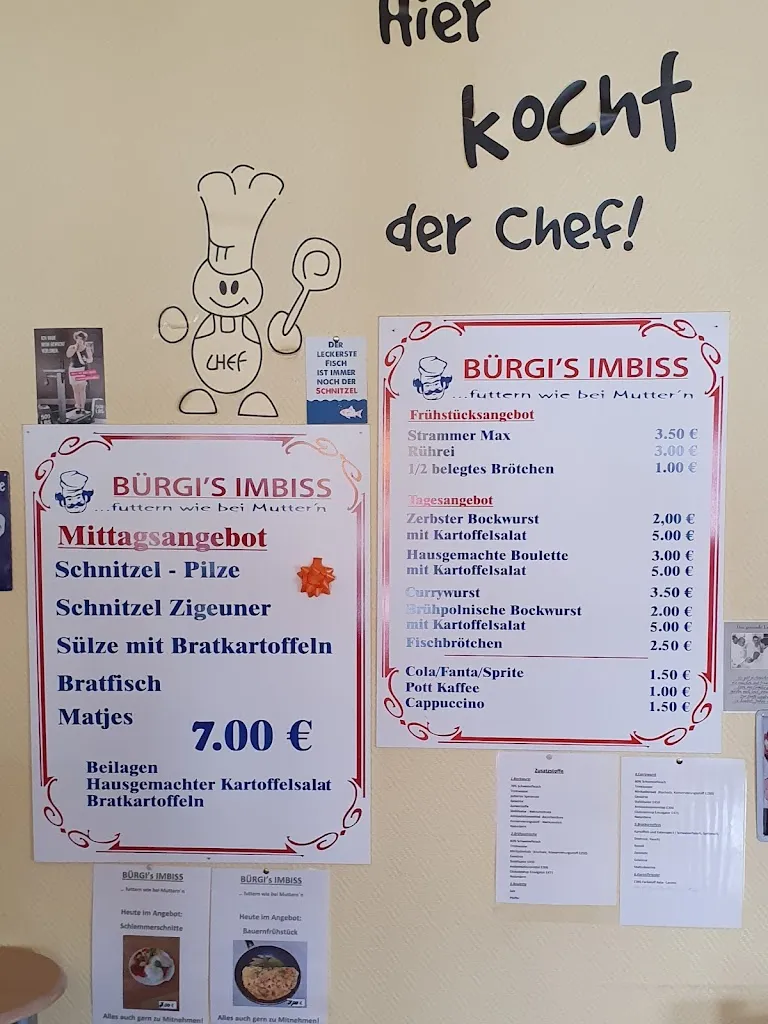 Hier
kocht
der Chef!
CHEF
DER
LECKERSTE
FISCH
IST IMMER
NOCH DER
SCHNITZEL
BÜRGI'S IMBISS
...futtern wie bei Mutter´n
Mittagsangebot
Schnitzel - Pilze
Schnitzel Zigeuner
Sülze mit Bratkartoffeln
Bratfisch
Matjes
7.00 €
Beilagen
Hausgemachter Kartoffelsalat
Bratkartoffeln
BÜRGI'S IMBISS
...futtern wie bei Mutter´n
Frühstücksangebot
Strammer Max 3.50 €
Rührei 3.00 €
1/2 belegtes Brötchen 1.00 €
Tagesangebot
Zerbster Bockwurst 2,00 €
mit Kartoffelsalat 5.00 €
Hausgemachte Boulette 3.00 €
mit Kartoffelsalat 5.00 €
Currywurst 3.50 €
Brühpolnische Bockwurst 2.00 €
mit Kartoffelsalat 5.00 €
Fischbrötchen 2.50 €
Cola/Fanta/Sprite 1.50 €
Pott Kaffee 1.00 €
Cappuccino 1.50 €
BÜRGI'S IMBISS
... futtern wie bei Muttern´n
Heute im Angebot:
Schlemmerschnitte
Alles auch gern zu Mitnehmen!
BÜRGI'S IMBISS
... futtern wie bei Muttern´n
Heute im Angebot:
Bauernfrühstück
Alles auch gern zum Mitnehmen!
Zusatzstoffe